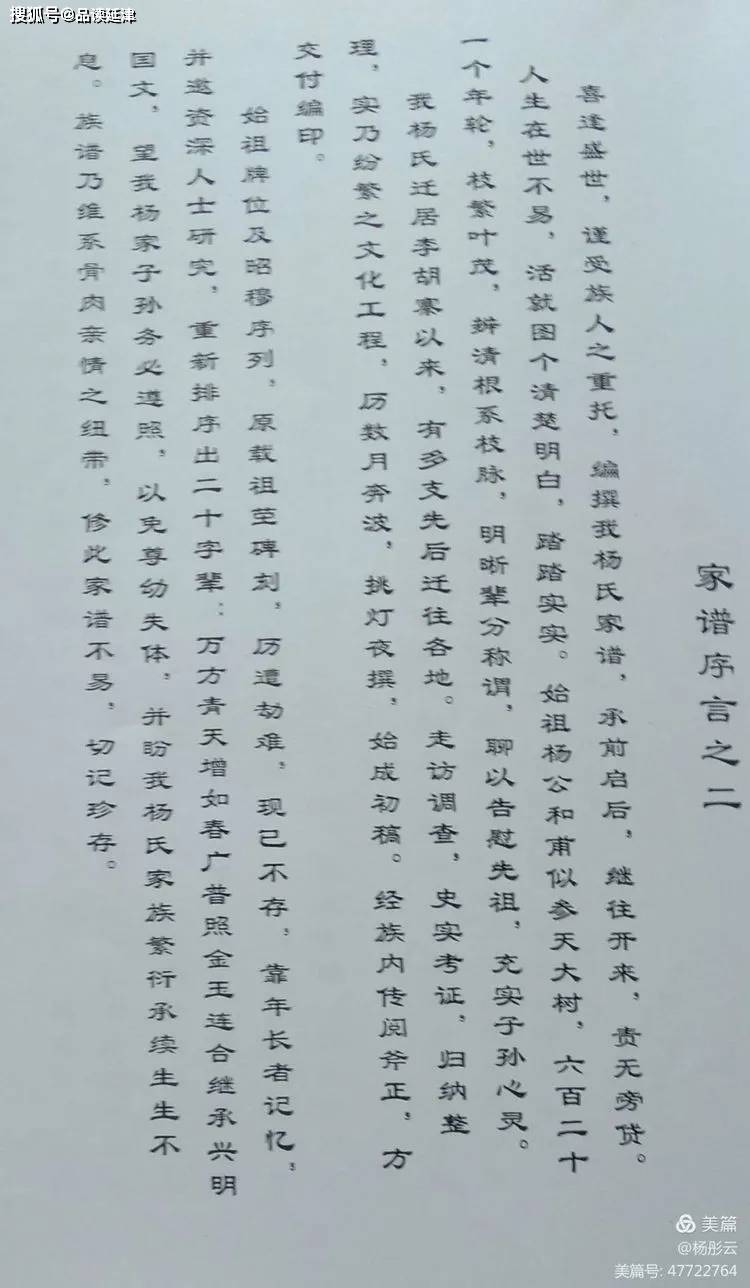 搜狐号@品读延津
家谱序言之二
喜逢盛世，谨受族人之重托，编撰我杨氏家谱，承前启后，继往开来，责无旁贷。
人生在世不易，活就图个清楚明白，踏踏实实。始祖杨公和甫似参天大树，六百二十
一个年轮，枝繁叶茂，辨清根系枝脉，明晰辈分称谓，聊以告慰先祖，充实子孙心灵。
我杨氏迁居李胡寨以来，有多支先后迁往各地。走访调查，史实考证，归纳整
理，实乃纷繁之文化工程，历数月奔波，挑灯夜撰，始成初稿。经族内传阅斧正，方
交付编印。
始祖牌位及昭穆序列，原载祖茔碑刻，历遭劫难，现已不存，靠年长者记忆，
并邀资深人士研究，重新排序出二十字辈：万方青天增如春广普照金玉连合继承兴明
国文，望我杨家子孙务必遵照，以免尊幼失体，并盼我杨氏家族繁衍承续生生不
息。族谱乃维系骨肉亲情之纽带，修此家谱不易，切记珍存。
美篇
@杨彤云
美篇号: 47722764